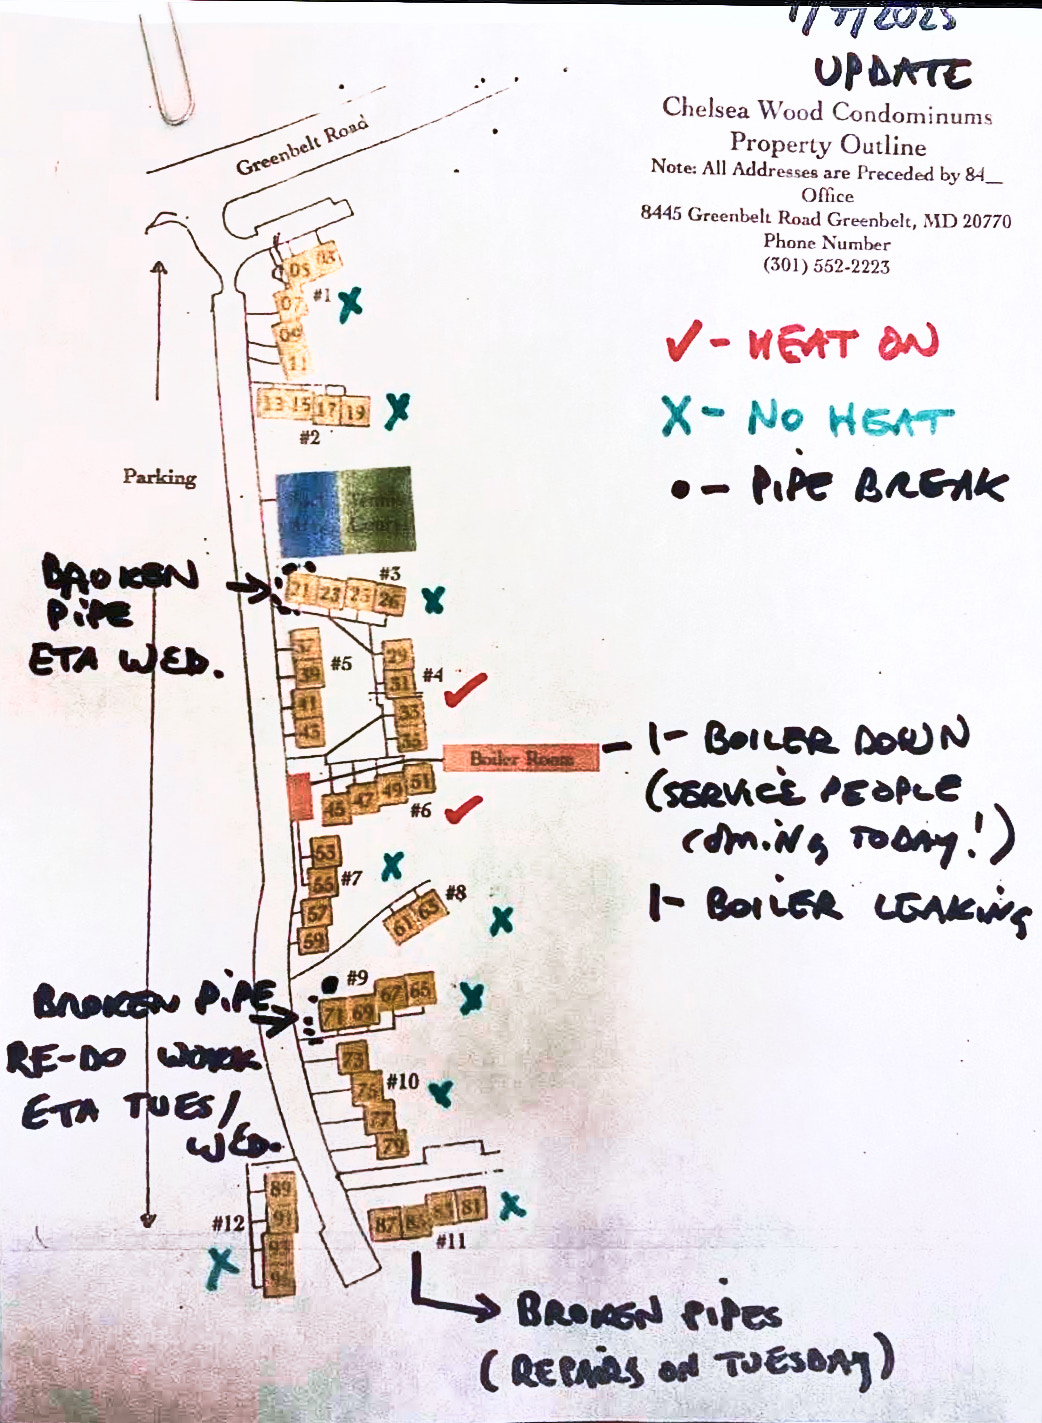 UPDATE
Chelsea Wood Condominums
Property Outline
Note: All Addresses are Preceded by 84__
Office
8445 Greenbelt Road Greenbelt, MD 20770
Phone Number
(301) 552-2223
Greenbelt Road
05 03
07 #1 X
09
11
13 15 17 19 X
#2
✓ - HEAT ON
X - NO HEAT
● - PIPE BREAK
Parking
Tennis
Court
BROKEN
PIPE
ETA WED.
#3
21 23 25 X
37 #5
39
41
43
29
31 #4 ✓
33
35
Boiler Room
1- BOILER DOWN
(SERVICE PEOPLE
COMING TODAY!)
1- BOILER LEAKING
45 47 49 51
#6 ✓
53
55 #7 X
57
59
#8
61 63 X
● #9
71 69 67 65 X
BROKEN PIPE
RE-DO WORK
ETA TUES/
WED.
73
75 #10 X
77
79
89
91
#12
X
87 81 X
#11
BROKEN PIPES
(REPAIRS ON TUESDAY)